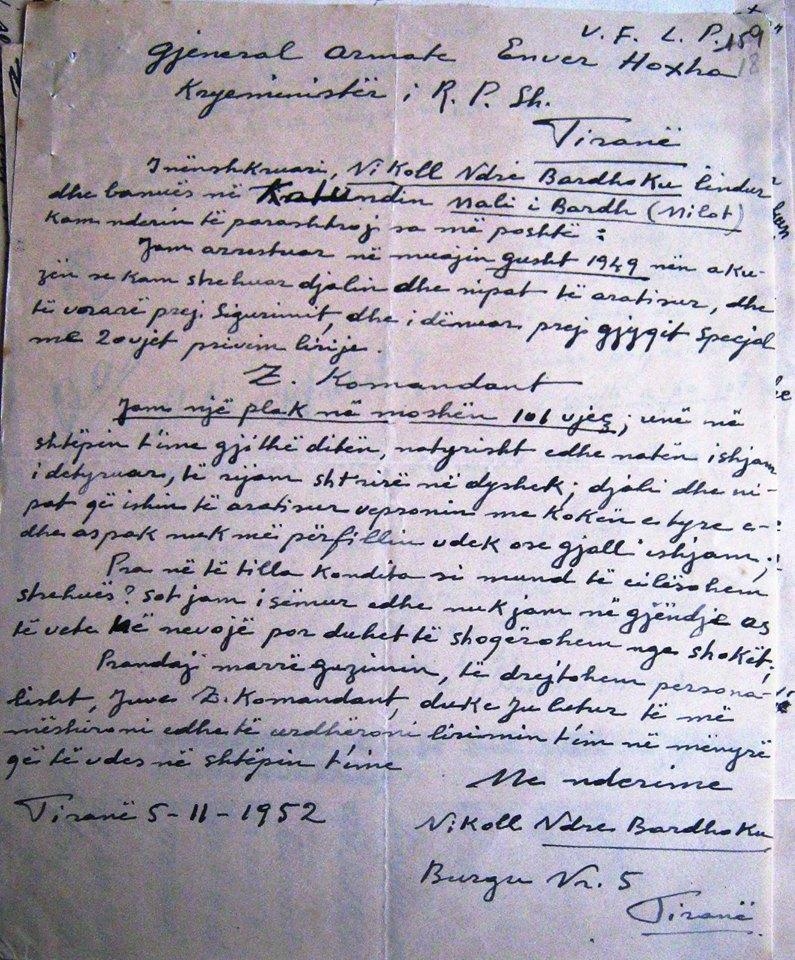 V. F. L. P. 159
18
Gjeneral Armate Enver Hoxha
Kryeministër i R. P. Sh.
Tiranë
I nënshkruari, Nikoll Ndre Bardhoku lindur
dhe banuës në Katundin Mali i Bardh (Milot)
kam nderin të parashtroj sa më poshtë:
Jam arrestuar në muajin gusht 1949 nën aku-
zën se kam strehuar djalin dhe nipat të aratisur, dhe
të vrarë prej Sigurimit, dhe i dënuar prej gjyqit special
me 20 vjet privim lirije.
Z. Komandant
Jam një plak në moshën 101 vjeç; unë në
shtëpin t'ime gjithë ditën, natyrisht edhe natën ishjam
i detyruar, të rijam shtrirë në dyshek; djali dhe ni-
pat që ishin të aratisur vepronin me kokën e tyre
dhe aspak nuk më përfillin vdek ose gjall ishjam;
Pra në të tilla kondita si mund të cilësohem
strehuës? sot jam i sëmur edhe nuk jam në gjëndje as
të vete në nevojë por duhet të shoqërohem nga shokët;
Prandaj marrë guzimin, të drejtohem persona-
lisht, Juve Z. Komandant, duke Ju lutur të më
mëshironi edhe të urdhëroni lirimin t'im në mënyrë
që të vdes në shtëpin t'ime
Me nderime
Tiranë 5-11-1952
Nikoll Ndre Bardhoku
Burgu Nr. 5
Tiranë